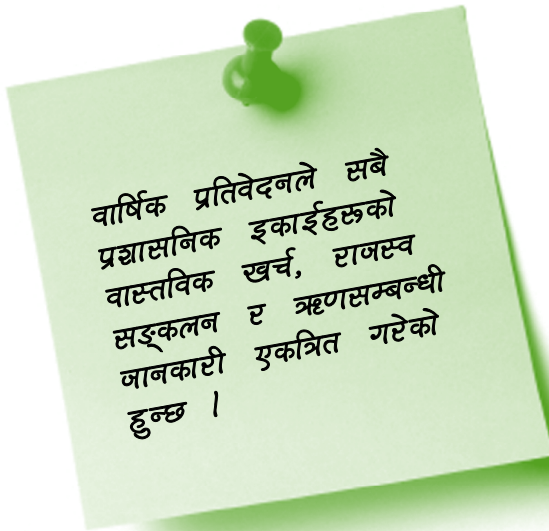 वार्षिक प्रतिवेदनले सबै
प्रशासनिक इकाईहरूको
वास्तविक खर्च, राजस्व
सङ्कलन र ऋणसम्बन्धी
जानकारी एकत्रित गरेको
हुन्छ ।